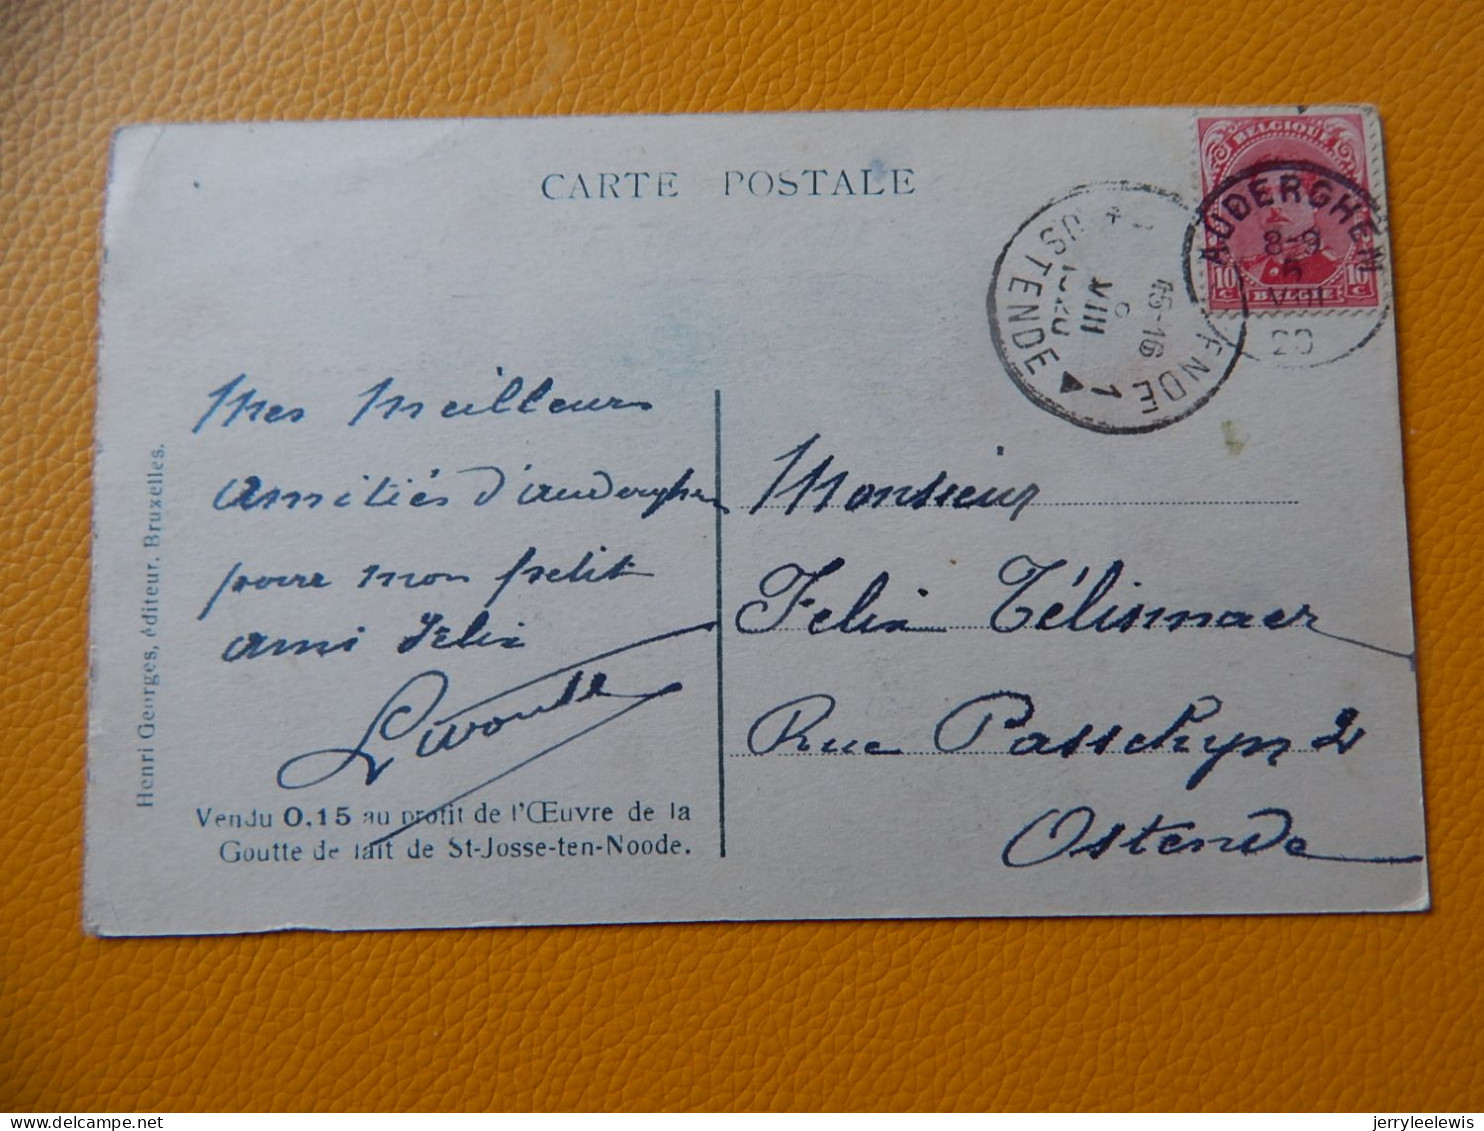 CARTE POSTALE
BELGIQUE
AUDERGHEM
8-9
5
VIII
20
10 c BELGIË 10 c
OSTENDE 1
15-16
VIII
1920
OSTENDE
Mes Meilleurs
amitiés d'auderghem
pour mon petit
ami Felix
Monsieur
Felix
Rue Passchyn 2
Ostende
Vendu 0,15 au profit de l'Œuvre de la
Goutte de lait de St-Josse-ten-Noode.
Henri Georges, éditeur, Bruxelles.
jerryleelewis